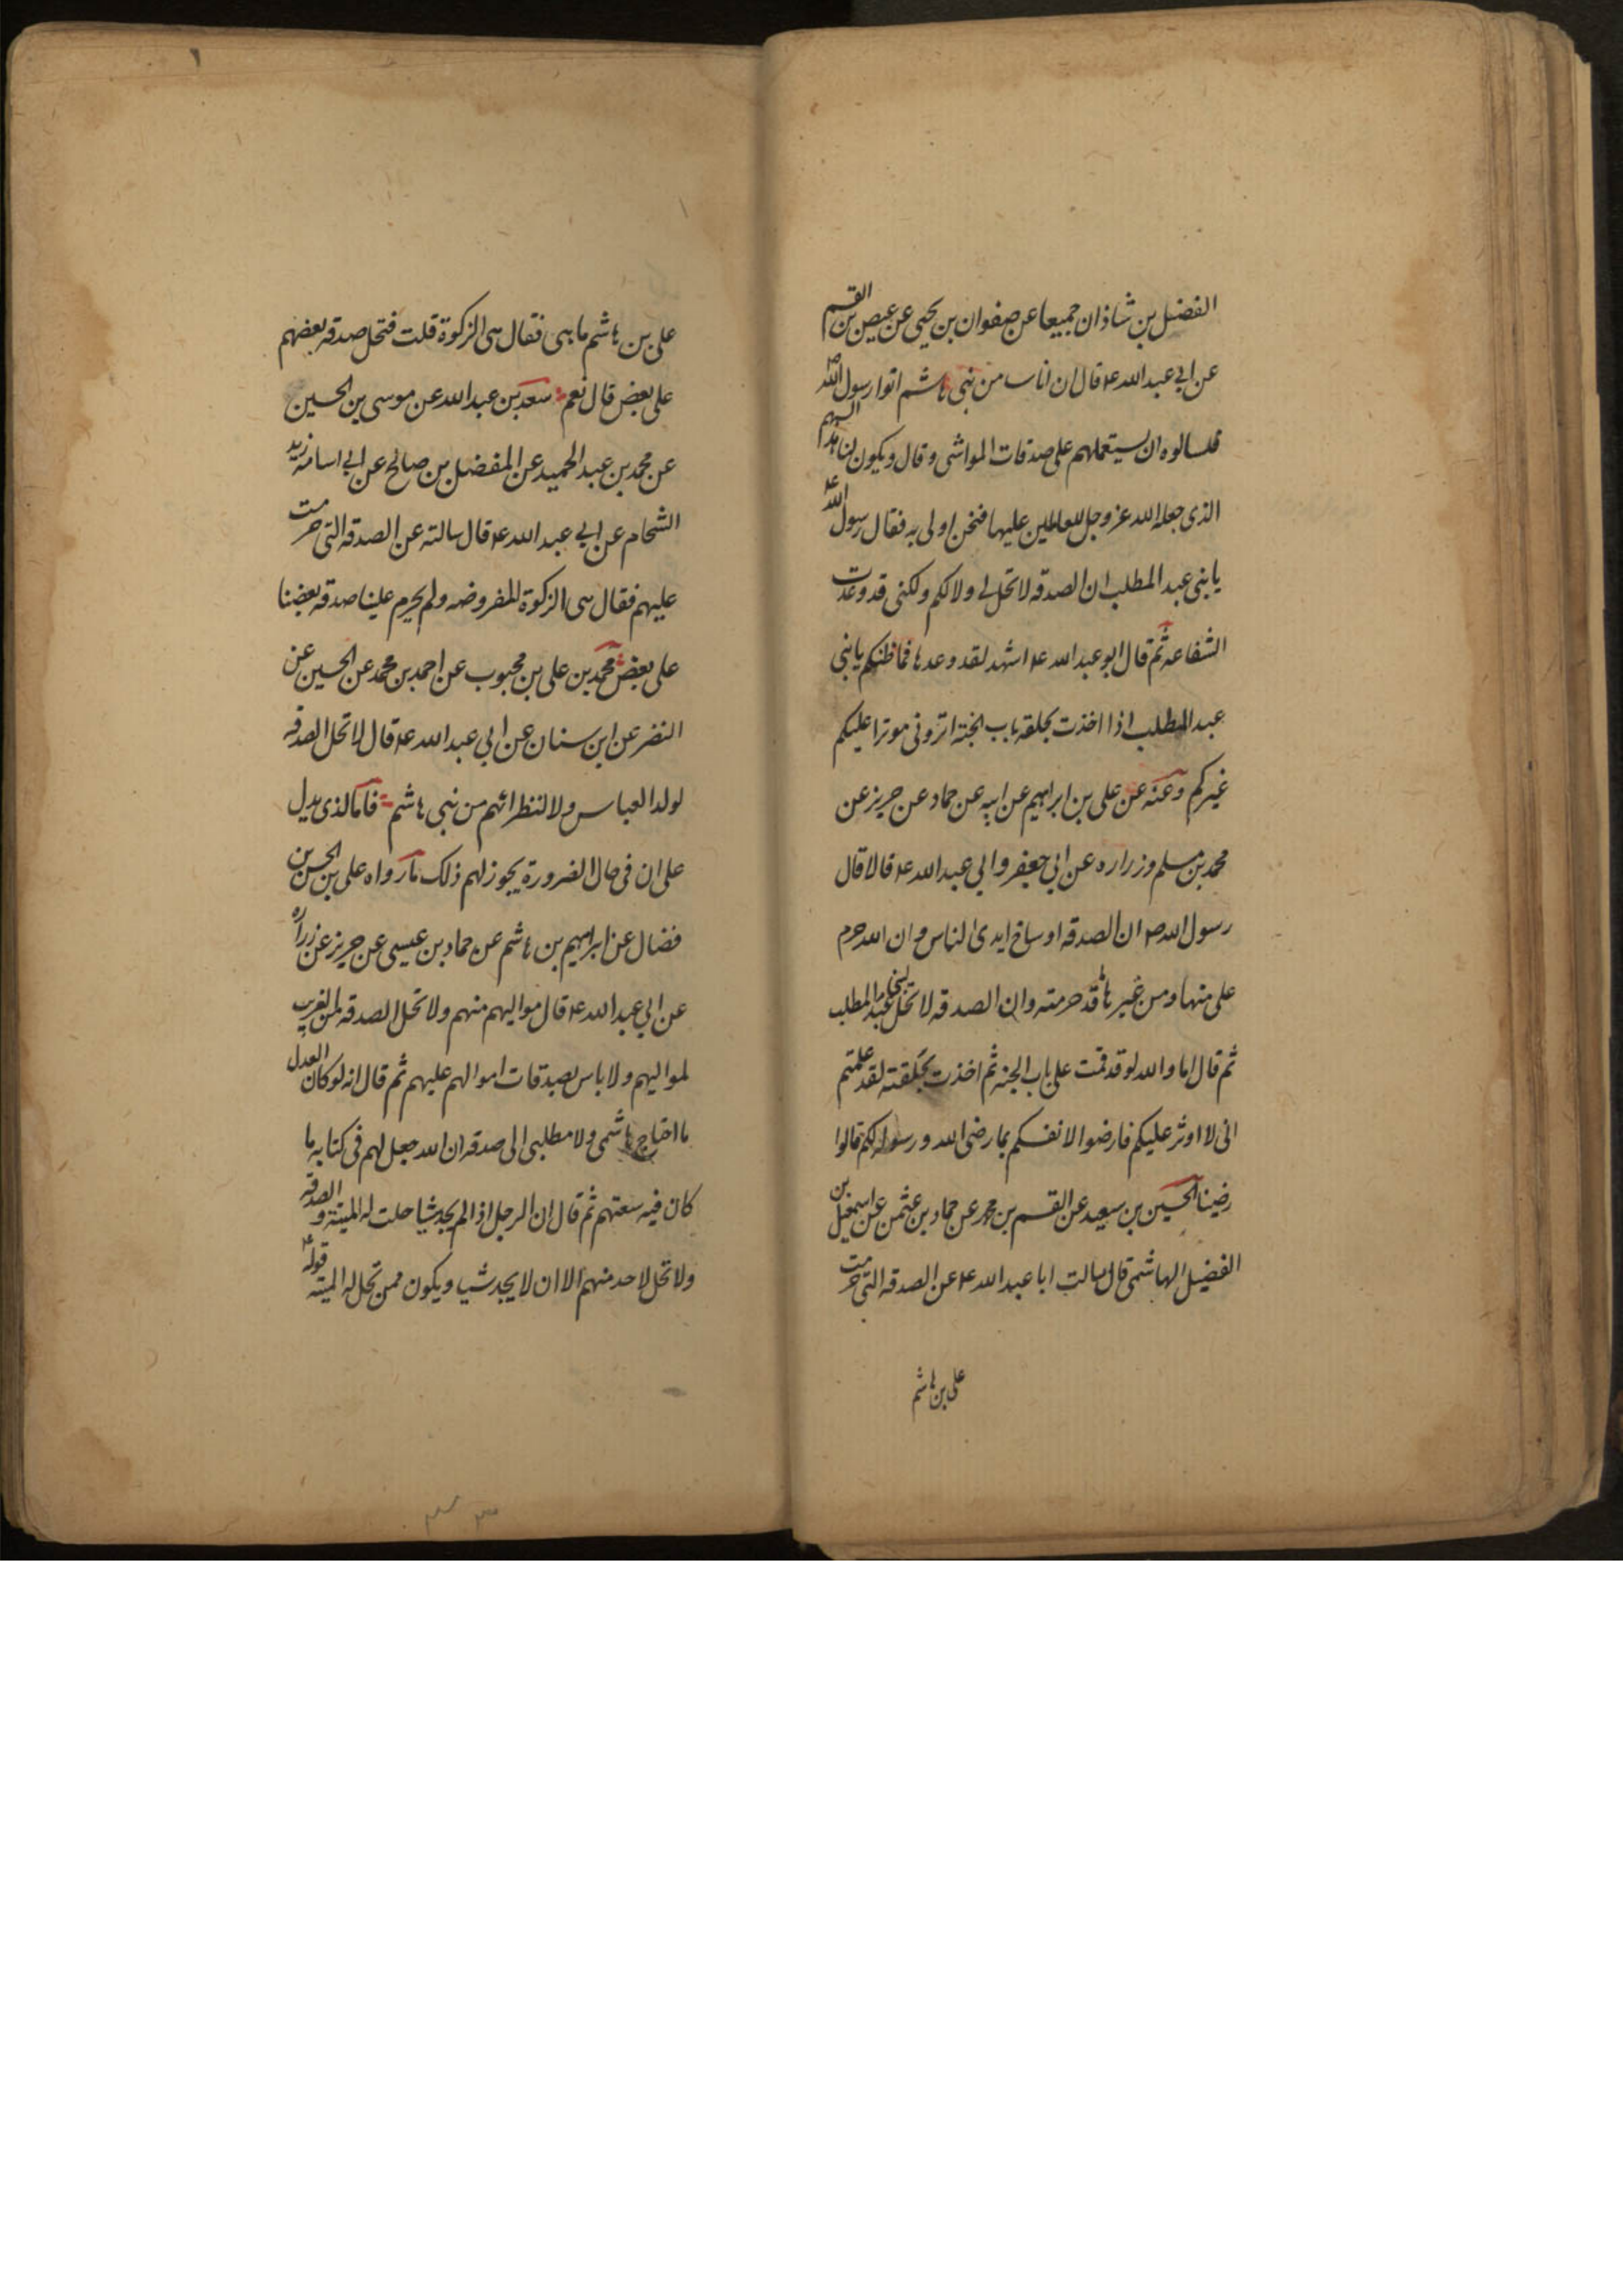 الفضل بن شاذان جميعا عن صفوان بن يحيى عن عيص بن القسم
عن ابي عبدالله ع قال ان اناسا من بني هاشم اتوا رسول الله ص
فسالوه ان يستعملهم على صدقات المواشي وقال ويكون لنا هذا السهم
الذي جعله الله عز وجل للعاملين عليها فنحن اولى به فقال رسول الله ع
يا بني عبد المطلب ان الصدقة لا تحل لي ولا لكم ولكني قد وعدت
الشفاعة ثم قال ابو عبدالله ع اشهد لقد وعدها فما ظنكم يا بني
عبد المطلب اذا اخذت بحلقة باب الجنة اتروني موثرا عليكم
غيركم وعنه عن علي بن ابراهيم عن ابيه عن حماد عن حريز عن
محمد بن مسلم وزراره عن ابي جعفر وابي عبدالله ع قالا قال
رسول الله ص ان الصدقه اوساخ ايدي الناس وان الله حرم
علي منها ومن غيرها قد حرمته وان الصدقه لا تحل لبني عبد المطلب
ثم قال اما والله لو قد قمت على باب الجنه ثم اخذت بحلقته لقد علمتم
اني لا اوثر عليكم فارضوا لانفسكم بما رضي الله ورسوله لكم قالوا
رضينا الحسين بن سعيد عن القسم بن محمد عن حماد بن عثمن عن اسمعيل بن
الفضيل الهاشمي قال سالت ابا عبدالله ع عن الصدقه التي حرمت
علي بن هاشم
علي بن هاشم ما هي فقال هي الزكوة قلت فتحل صدقه بعضهم
على بعض قال نعم سعد بن عبدالله عن موسى بن الحسين
عن محمد بن عبد الحميد عن المفضل بن صالح عن ابي اسامه زيد
الشحام عن ابي عبدالله ع قال سالته عن الصدقه التي حرمت
عليهم فقال هي الزكوة المفروضه ولم يحرم علينا صدقه بعضنا
على بعض محمد بن علي بن محبوب عن احمد بن محمد عن الحسين عن
النضر عن ابن سنان عن ابي عبدالله ع قال لا تحل الصدقه
لولد العباس ولا لنظرائهم من بني هاشم فاما الذي يدل
على ان في حال الضرورة يجوز لهم ذلك ما رواه علي بن الحسن بن
فضال عن ابراهيم بن هاشم عن حماد بن عيسى عن حريز عن زراره
عن ابي عبدالله ع قال مواليهم منهم ولا تحل الصدقه من الغريب
لمواليهم ولا باس بصدقات مواليهم عليهم ثم قال انه لو كان العدل
ما احتاج هاشمي ولا مطلبي الى صدقه ان الله جعل لهم في كتابه ما
كان فيه سعتهم ثم قال ان الرجل اذا لم يجد شيا حلت له الميتة و الصدقه
ولا تحل لاحد منهم الا ان لا يجد شيا ويكون ممن تحل له الميته
قوله ع